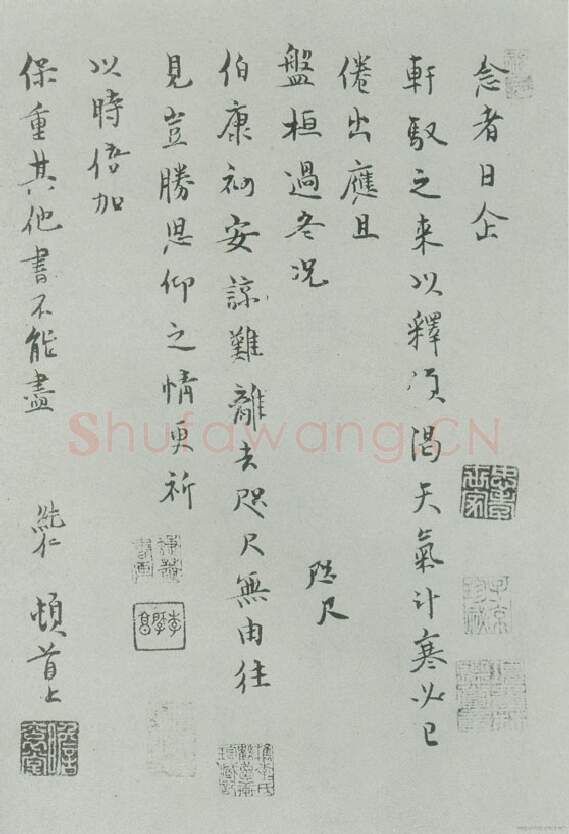 念者日企
軒馭之来以釋傾渴天氣計寒必已
倦出應且
盤桓過冬況
伯康初安諒難離去咫尺無由往
咫尺
見豈勝思仰之情更祈
以時倍加
保重其他書不能盡 純仁 頓首上
Shufawang.CN